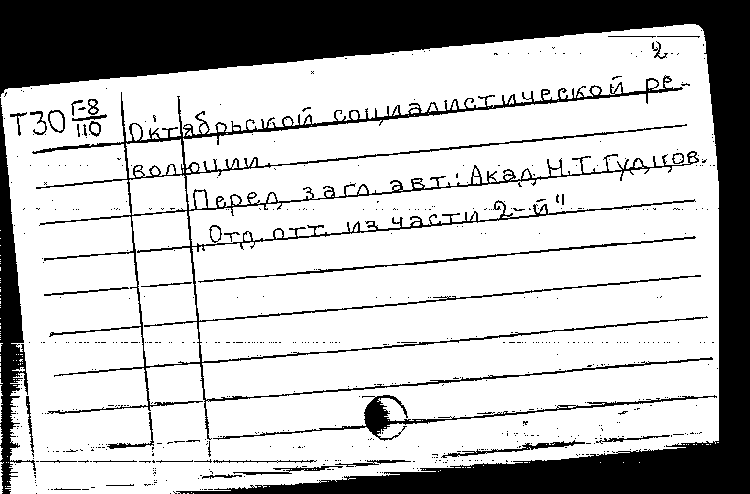 2
Т30 Г-8/110
Октябрьской социалистической ре-
волюции.
Перед загл. авт.: Акад. Н.Т. Гудцов.
„Отд. отт. из части 2-й"